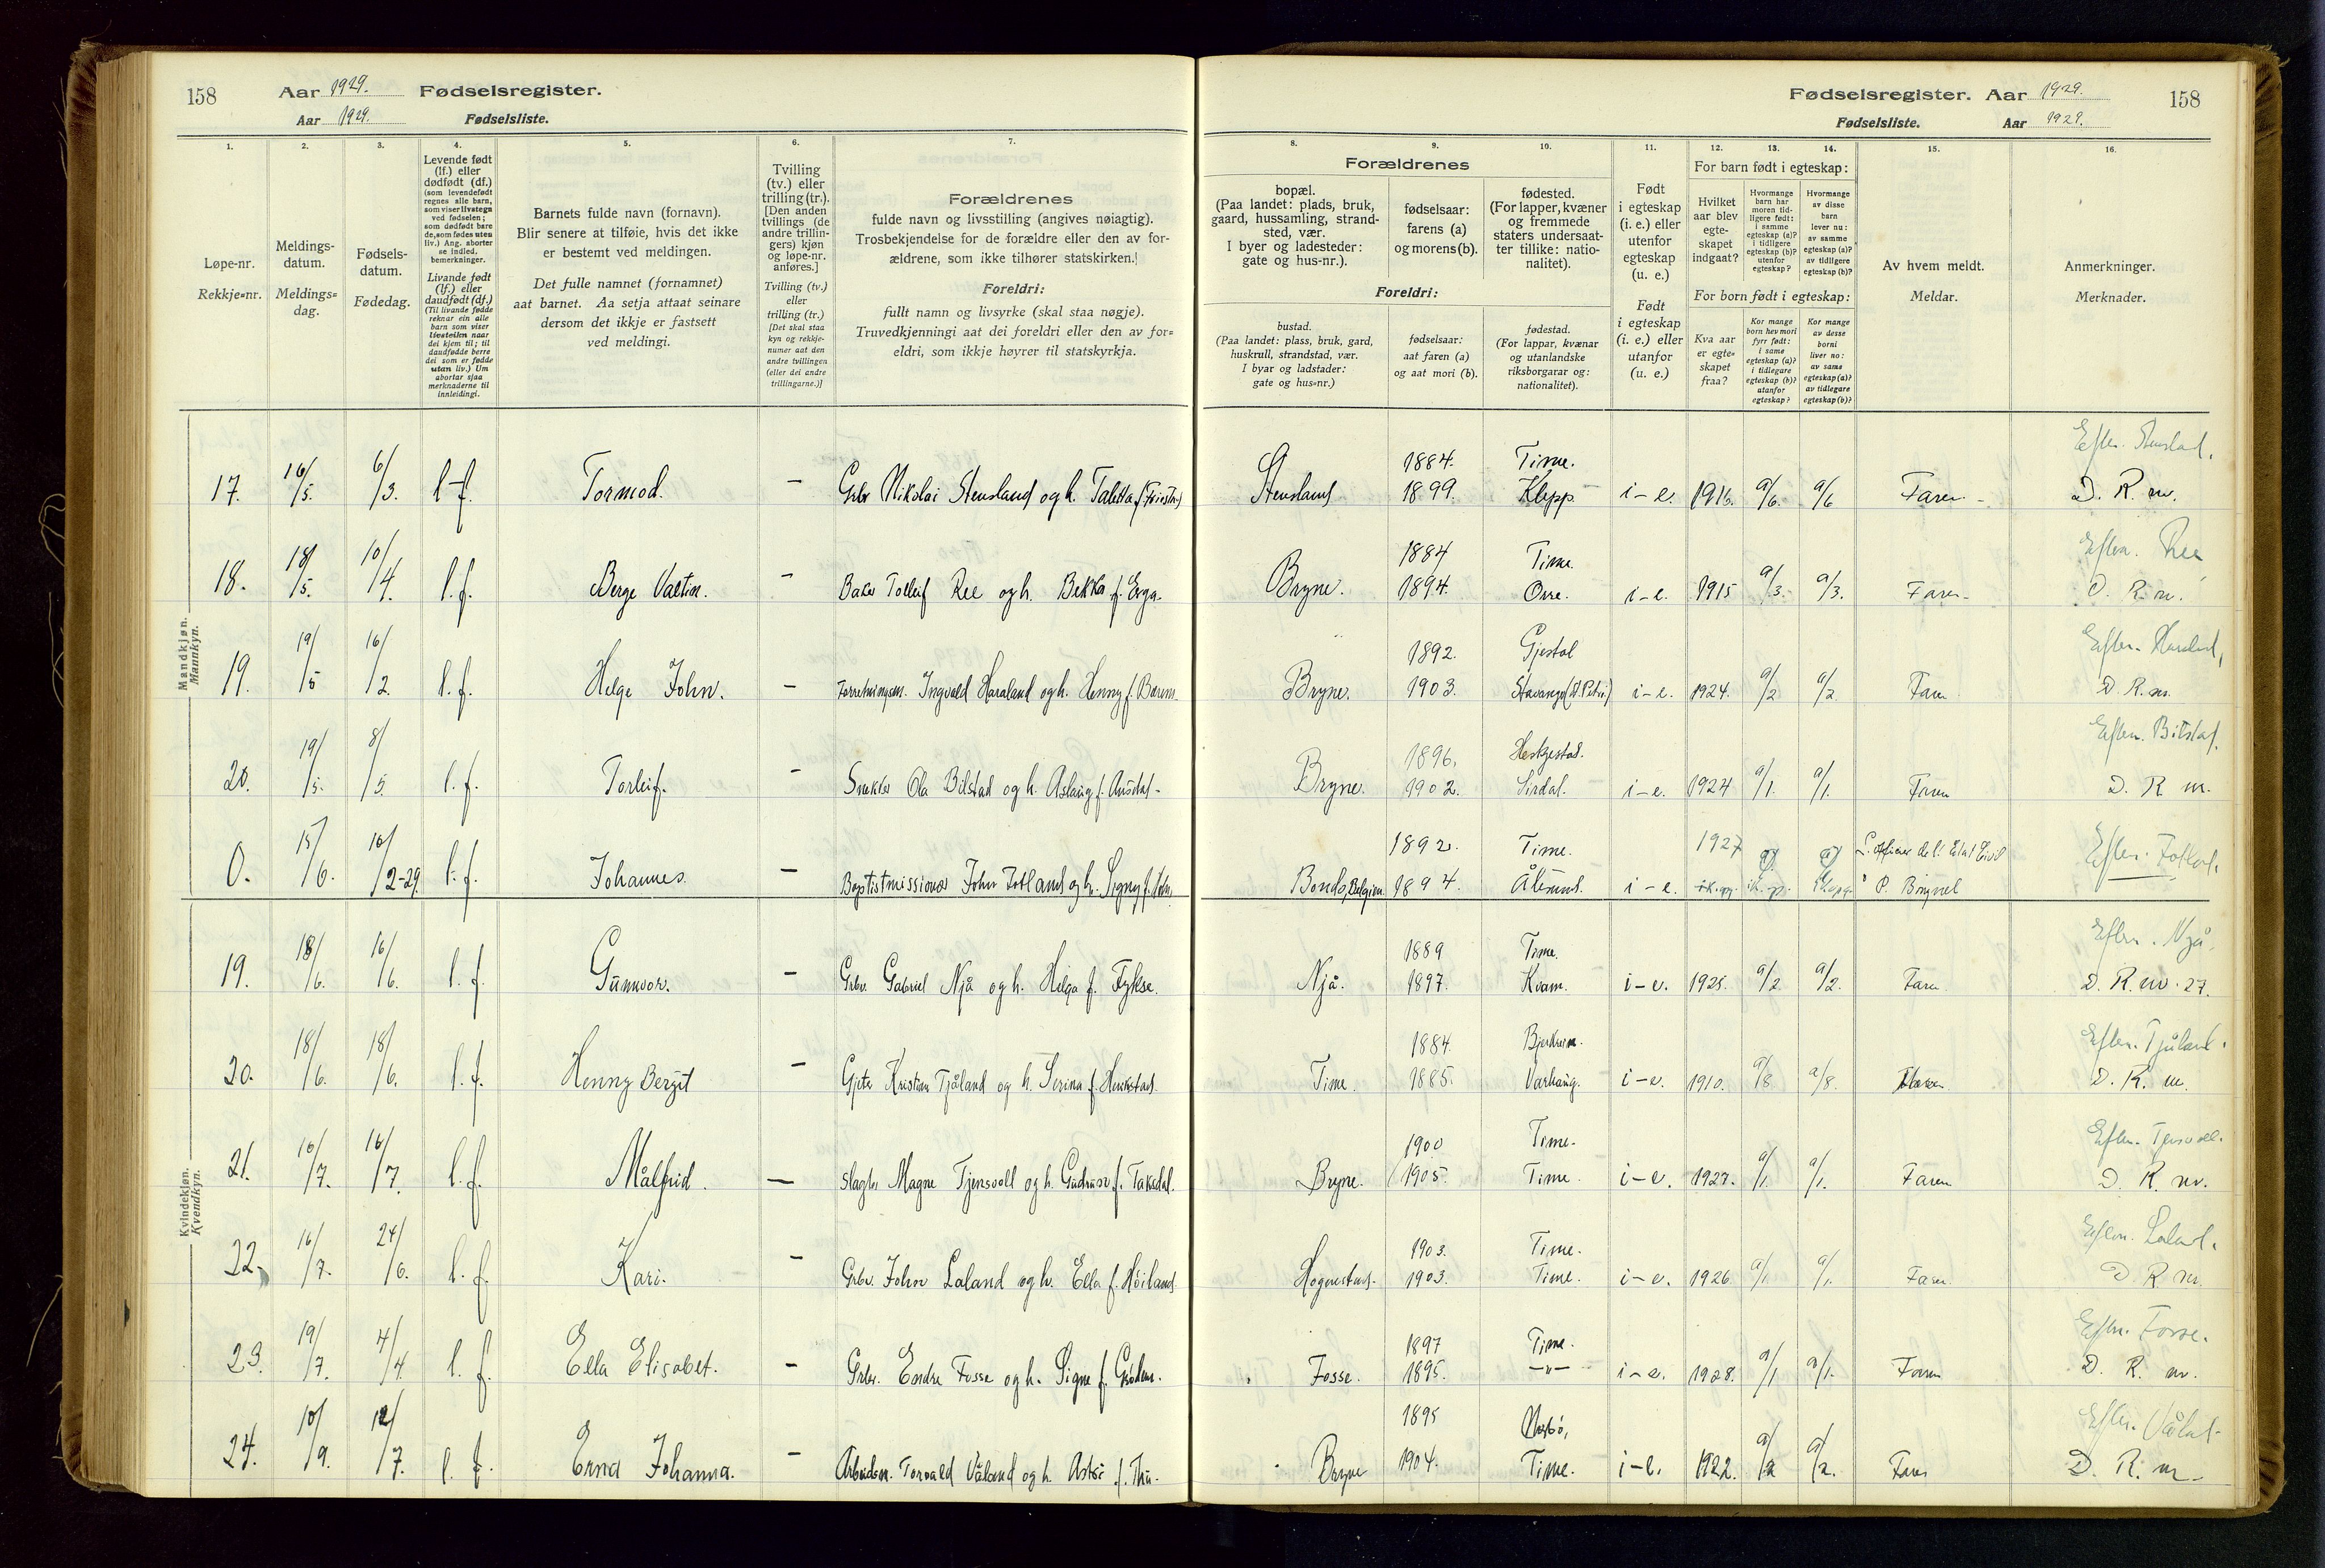 158 Aar 1929. Fødselsregister.
Aar 1929. Fødselsliste.
Fødselsregister. Aar 1929. 158
Fødselsliste. Aar 1929.
1. 2. 3. 4. 5. 6. 7.
Løpe-nr.
Rekkje-nr.
Meldings-
datum.
Meldings-
dag.
Fødsels-
datum.
Fødedag.
Levende født
(lf.) eller
dødfødt (df.)
(som levendefødt
regnes alle barn,
som viser livstegn
ved fødselen;
som dødfødt bare
de, som fødes uten
liv.) Ang. aborter
se indled.
bemerkninger.
Livande født
(lf.) eller
daudfødt (df.)
(Til livande fødde
reknar ein alle
barn som viser
livsteikn naar
dei kjem til; til
daudfødde berre
dei som er fødde
utan liv.) Um
abortar sjaa
merknaderne til
innleidingi.
Barnets fulde navn (fornavn).
Blir senere at tilføie, hvis det ikke
er bestemt ved meldingen.
Det fulle namnet (fornamnet)
aat barnet. Aa setja attaat seinare
dersom det ikkje er fastsett
ved meldingi.
Tvilling
(tv.) eller
trilling (tr.).
[Den anden
tvillings (de
andre trillin-
gers) kjøn
og løpe-nr.
anføres.]
Tvilling (tv.)
eller
trilling (tr.)
[Det skal staa
kyn og rekkje-
numer aat den
andre tvillingen
(eller dei andre
trillingarne.)]
Forældrenes
fulde navn og livsstilling (angives nøiagtig).
Trosbekjendelse for de forældre eller den av for-
ældrene, som ikke tilhører statskirken.
Foreldri:
fullt namn og livsyrke (skal staa nøgje).
Truvedkjenningi aat dei foreldri eller den av for-
eldri, som ikkje høyrer til statskyrkja.
8. 9. 10. 11. 12. 13. 14. 15. 16.
Forældrenes
bopæl.
(Paa landet: plads, bruk,
gaard, hussamling, strand-
sted, vær.
I byer og ladesteder:
gate og hus-nr.).
fødselsaar:
farens (a)
og morens (b).
fødested.
(For lapper, kvæner
og fremmede
staters undersaat-
ter tillike: natio-
nalitet).
Foreldri:
bustad.
(Paa landet: plass, bruk, gard,
huskrull, strandstad, vær.
I byar og ladstader:
gate og hus-nr.)
fødselsaar:
aat faren (a)
og aat mori (b).
fødestad.
(For lappar, kvænar
og utanlandske
riksborgarar og:
nationalitet).
Født
i egteskap
(i. e.) eller
utenfor
egteskap
(u. e.)
Født
i egteskap
(i. e.) eller
utanfor
(u. e.)
For barn født i egteskap:
Hvilket
aar blev
egte-
skapet
indgaat?
Hvormange
barn har
moren tid-
ligere født:
i samme
egteskap (a)?
i tidligere
egteskap (b)?
utenfor
egteskap?
Hvormange
av disse
barn
lever nu:
av samme
egteskap (a)?
av tidligere
egteskap (b)?
For born født i egteskap:
Kva aar
er egte-
skapet
fraa?
Kor mange
born hev mori
fyrr født:
i same
egteskap (a)?
i tidlegare
egteskap (b)?
utanfor
egteskap?
Kor mange
av desse
borni
liver no:
av same
egteskap (a)?
av tidlegare
egteskap (b)?
Av hvem meldt.
Meldar.
Anmerkninger.
Merknader.
Mandkjøn.
Mannkyn.
17. 16/5. 6/3. l-f. Tormod. – Grbr Nikolai Stensland og h. Taletta f. Stensland 1884. 1899. Time. Klepp i-e. 1916. a/6. a/6 Faren- Efter. Stensland. D. R. m.
18. 18/5. 10/4. l.f. Berge Valtin. - Baker Tolleif Ree og h. Bekka f. Erga. Bryne. 1884 1894. Time. Orre. i-e. 1915 a/3. a/3. Faren- Eftn. Ree D. R. m.
19. 19/5 16/2. l.f. Helge John. – Forretningsm. Ingvald Haraland og h. Henny f. Bryne. 1892. 1903. Gjestal Stavanger (St. Petri) i-e. 1924. a/2 a/2. Faren Eftn. Haraland, D. R. m.
20. 19/5. 8/5. l.f. Torleif. - Snekker Ola Bilstad og h. Aslaug f. Bryne. 1896. 1902. Heskjestad. Sirdal. i-e. 1924 a/1. a/1. Faren Eftn. Bilstad. D. R. m.
0. 15/6. 10/2-29 l.f. Johannes. – Baptistmissionær John Fotland og h. Signy f. Belgien 1892. 1894. Time. Ålesund. i-e. 1927 L'officier de l'Etat Civil P. Eftn. Fotland.
Kvindekjøn.
Kvendkyn.
19. 18/6. 16/6. l.f. Gunnvor. – Grbr. Gabriel Njå og h. Helga f. Fykse. Njå. 1889 1897. Time. Kvam. i-e. 1925. a/2 a/2. Faren Eftn. Njå. D. R. nr. 27.
20. 18/6. 18/6. l.f. Henny Bergit – Gjeter Kristian Tjåland og h. Serina f. Henkstad. Time. 1884. 1885. Bjerkreim. Varhaug. i-e. 1910. a/8 a/8. Eftn. Tjåland. D. R. m.
21. 16/7. 16/7. l.f. Målfrid. — Slagter Magne Tjensvoll og h. Gudrun f. Taksdal. Bryne. 1900 1905. Time. Time. i-e. 1927. a/1. a/1. Faren Eftn. Tjensvoll. D. R. m.
22. 16/7. 24/6. l.f. Kari. – Grbr. John Laland og h. Ella f. Høiland Hognestad. 1903. 1903. Time. Time. i-e. 1926 a/1. a/1. Faren Eftn. Laland. D. R. m.
23. 19/7. 4/4. l.f. Ella Elisabet. – Grbr. Endre Fosse og h. Signe f. Fosse. 1897 1895. Time. —"— i-e. 1928. a/1 a/1. Faren Eftn. Fosse. D. R. m.
24. 10/9. 12/7. l.f. Erna Johanna. – Arbeidsm. Torvald Våland og h. Astri f. Thu. Bryne 1895 1904. Time. i-e. 1922. a/2 a/2. Faren Eftn. Våland D. R. m-